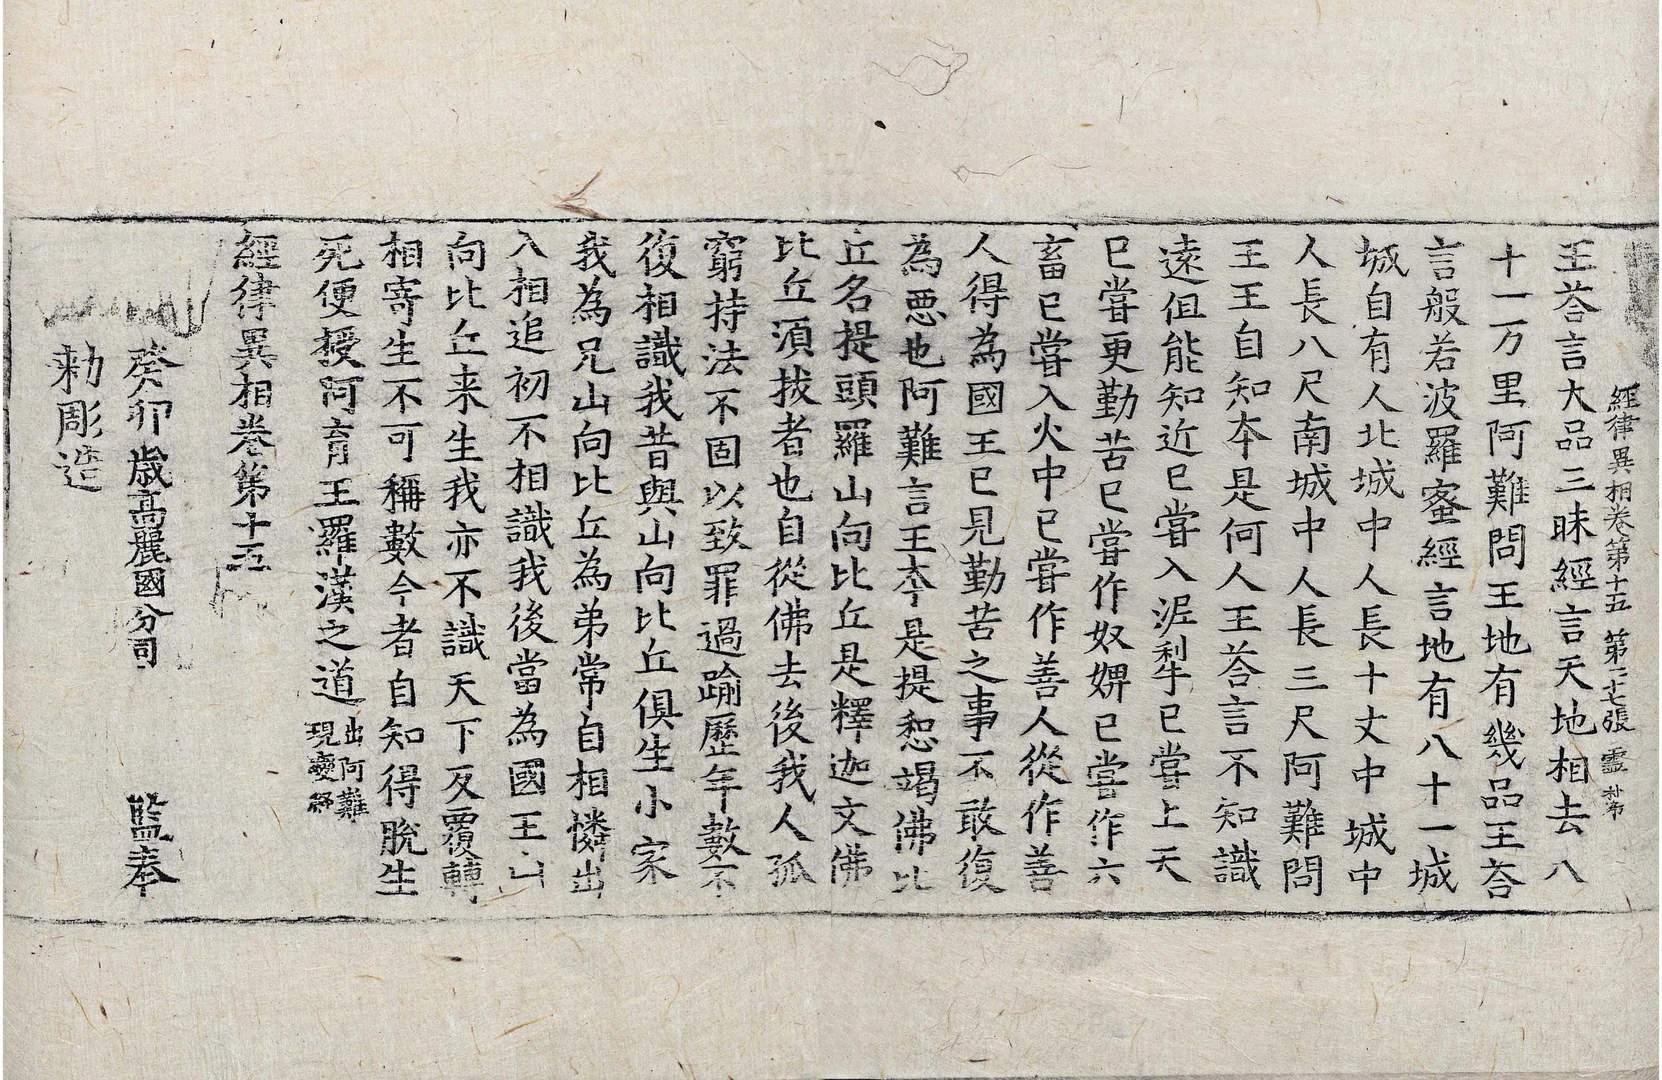 經律異相卷第十五 第二七張 靈
王荅言大品三昧經言天地相去八
十一万里阿難問王地有幾品王荅
言般若波羅蜜經言地有八十一城
城自有人北城中人長十丈中城中
人長八尺南城中人長三尺阿難問
王王自知夲是何人王荅言不知識
遠但能知近已嘗入泥犁已嘗上天
已嘗更勤苦已嘗作奴婢已嘗作六
畜已嘗入火中已嘗作善人從作善
人得為國王已見勤苦之事不敢復
為惡也阿難言王夲是提惒竭佛比
丘名提頭羅山向比丘是釋迦文佛
比丘須拔者也自從佛去後我人孤
窮持法不固以致罪過踰歷年數不
復相識我昔與山向比丘俱生小家
我為兄山向比丘為弟常自相憐出
入相追初不相識我後當為國王山
向比丘来生我亦不識天下反覆轉
相寄生不可稱數今者自知得脫生
死便授阿育王羅漢之道 出阿難現變經
經律異相卷第十五
癸卯歲高麗國分司 監奉
勅彫造